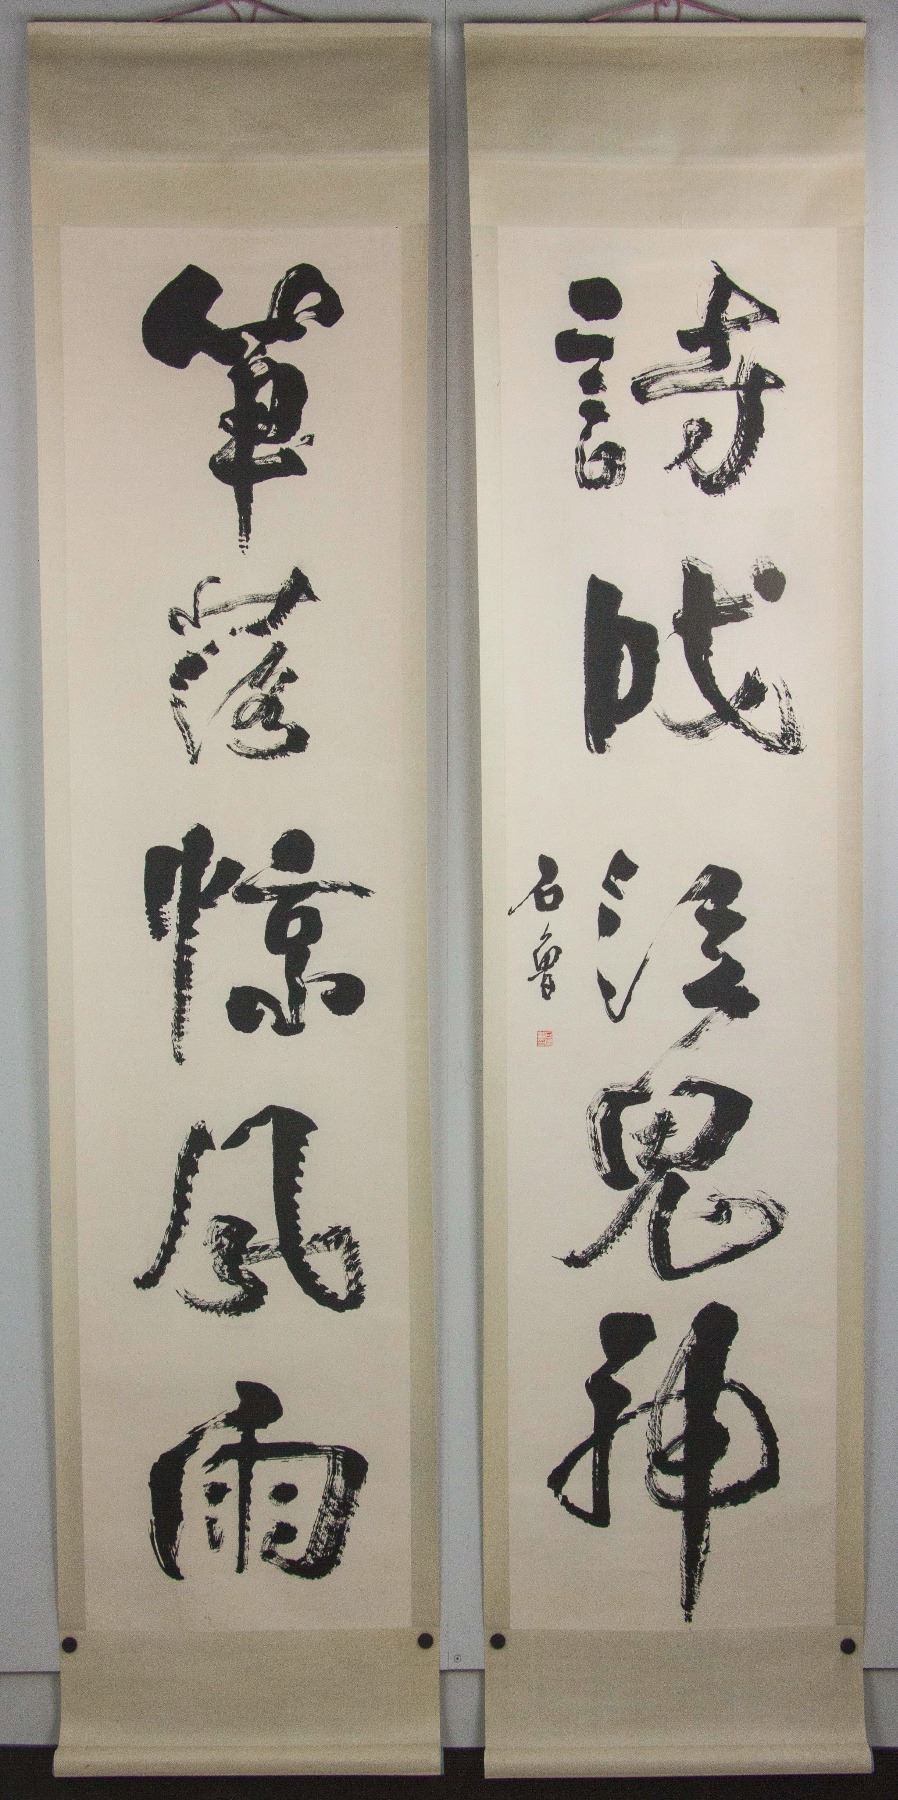 筆落惊风雨
詩成泣鬼神
石魯